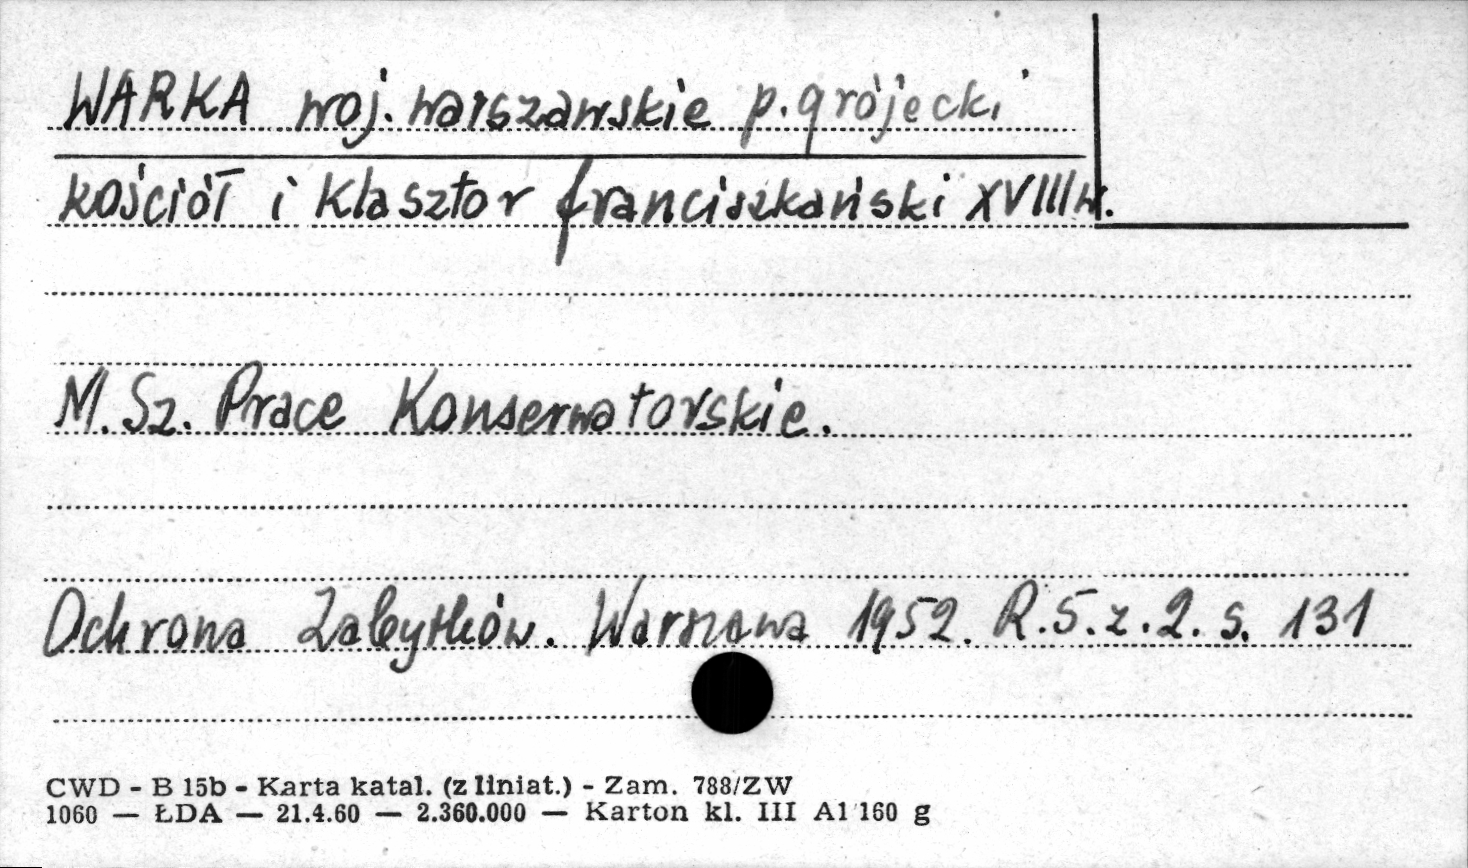 WARKA woj. warszawskie p. grójecki
kościół i klasztor franciszkański XVIII w.
M. Sz. Prace Konserwatorskie.
Ochrona Zabytków. Warszawa 1952. R.5.z.2. s. 131
CWD - B 15b - Karta katal. (z liniat.) - Zam. 788/ZW
1060 — ŁDA — 21.4.60 — 2.360.000 — Karton kl. III A1 160 g